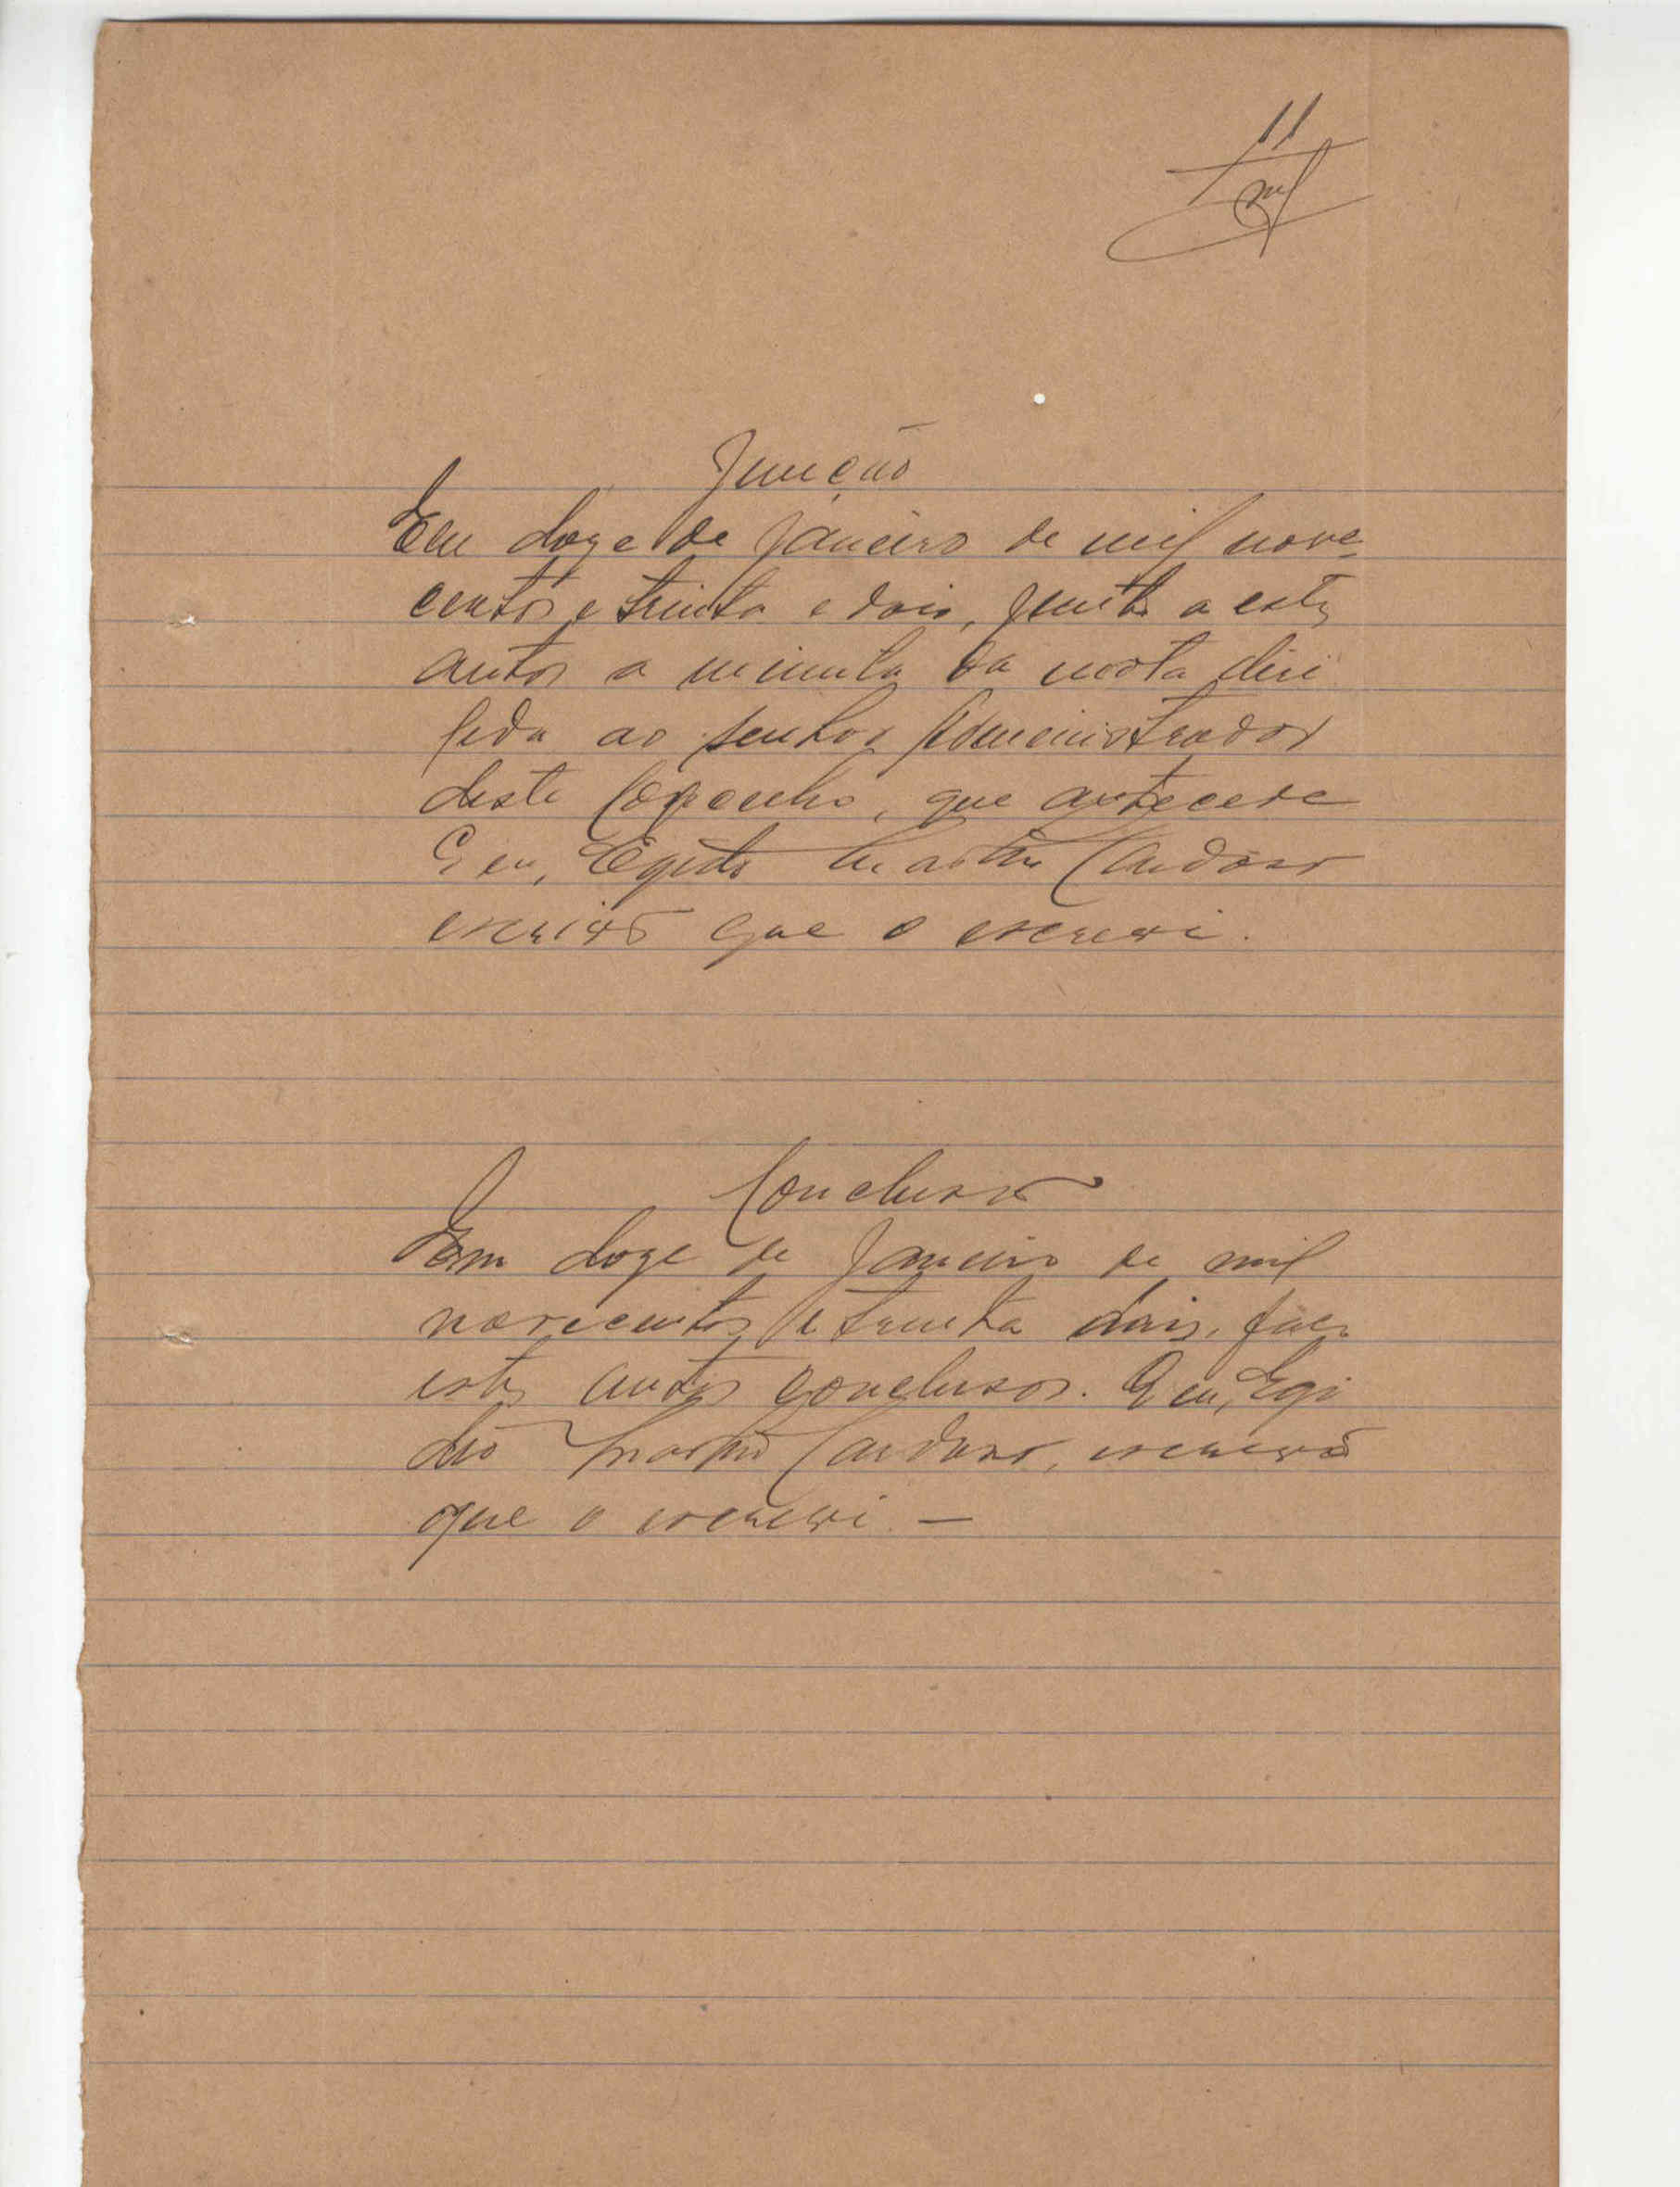 11
Junção
Em doze de Janeiro de mil nove
centos e trinta e dois, junto a estes
autos a minuta da nota diri
gida ao senhor Administrador
deste Concelho, que antecede
E eu, Egidio Martins Cardoso
escrivão que o escrevi.
Conclusão
Em doze de Janeiro de mil
novecentos e trinta dois, faço
estes autos conclusos. E eu, Egi
dio Martins Cardoso, escrivão
que o escrevi. —